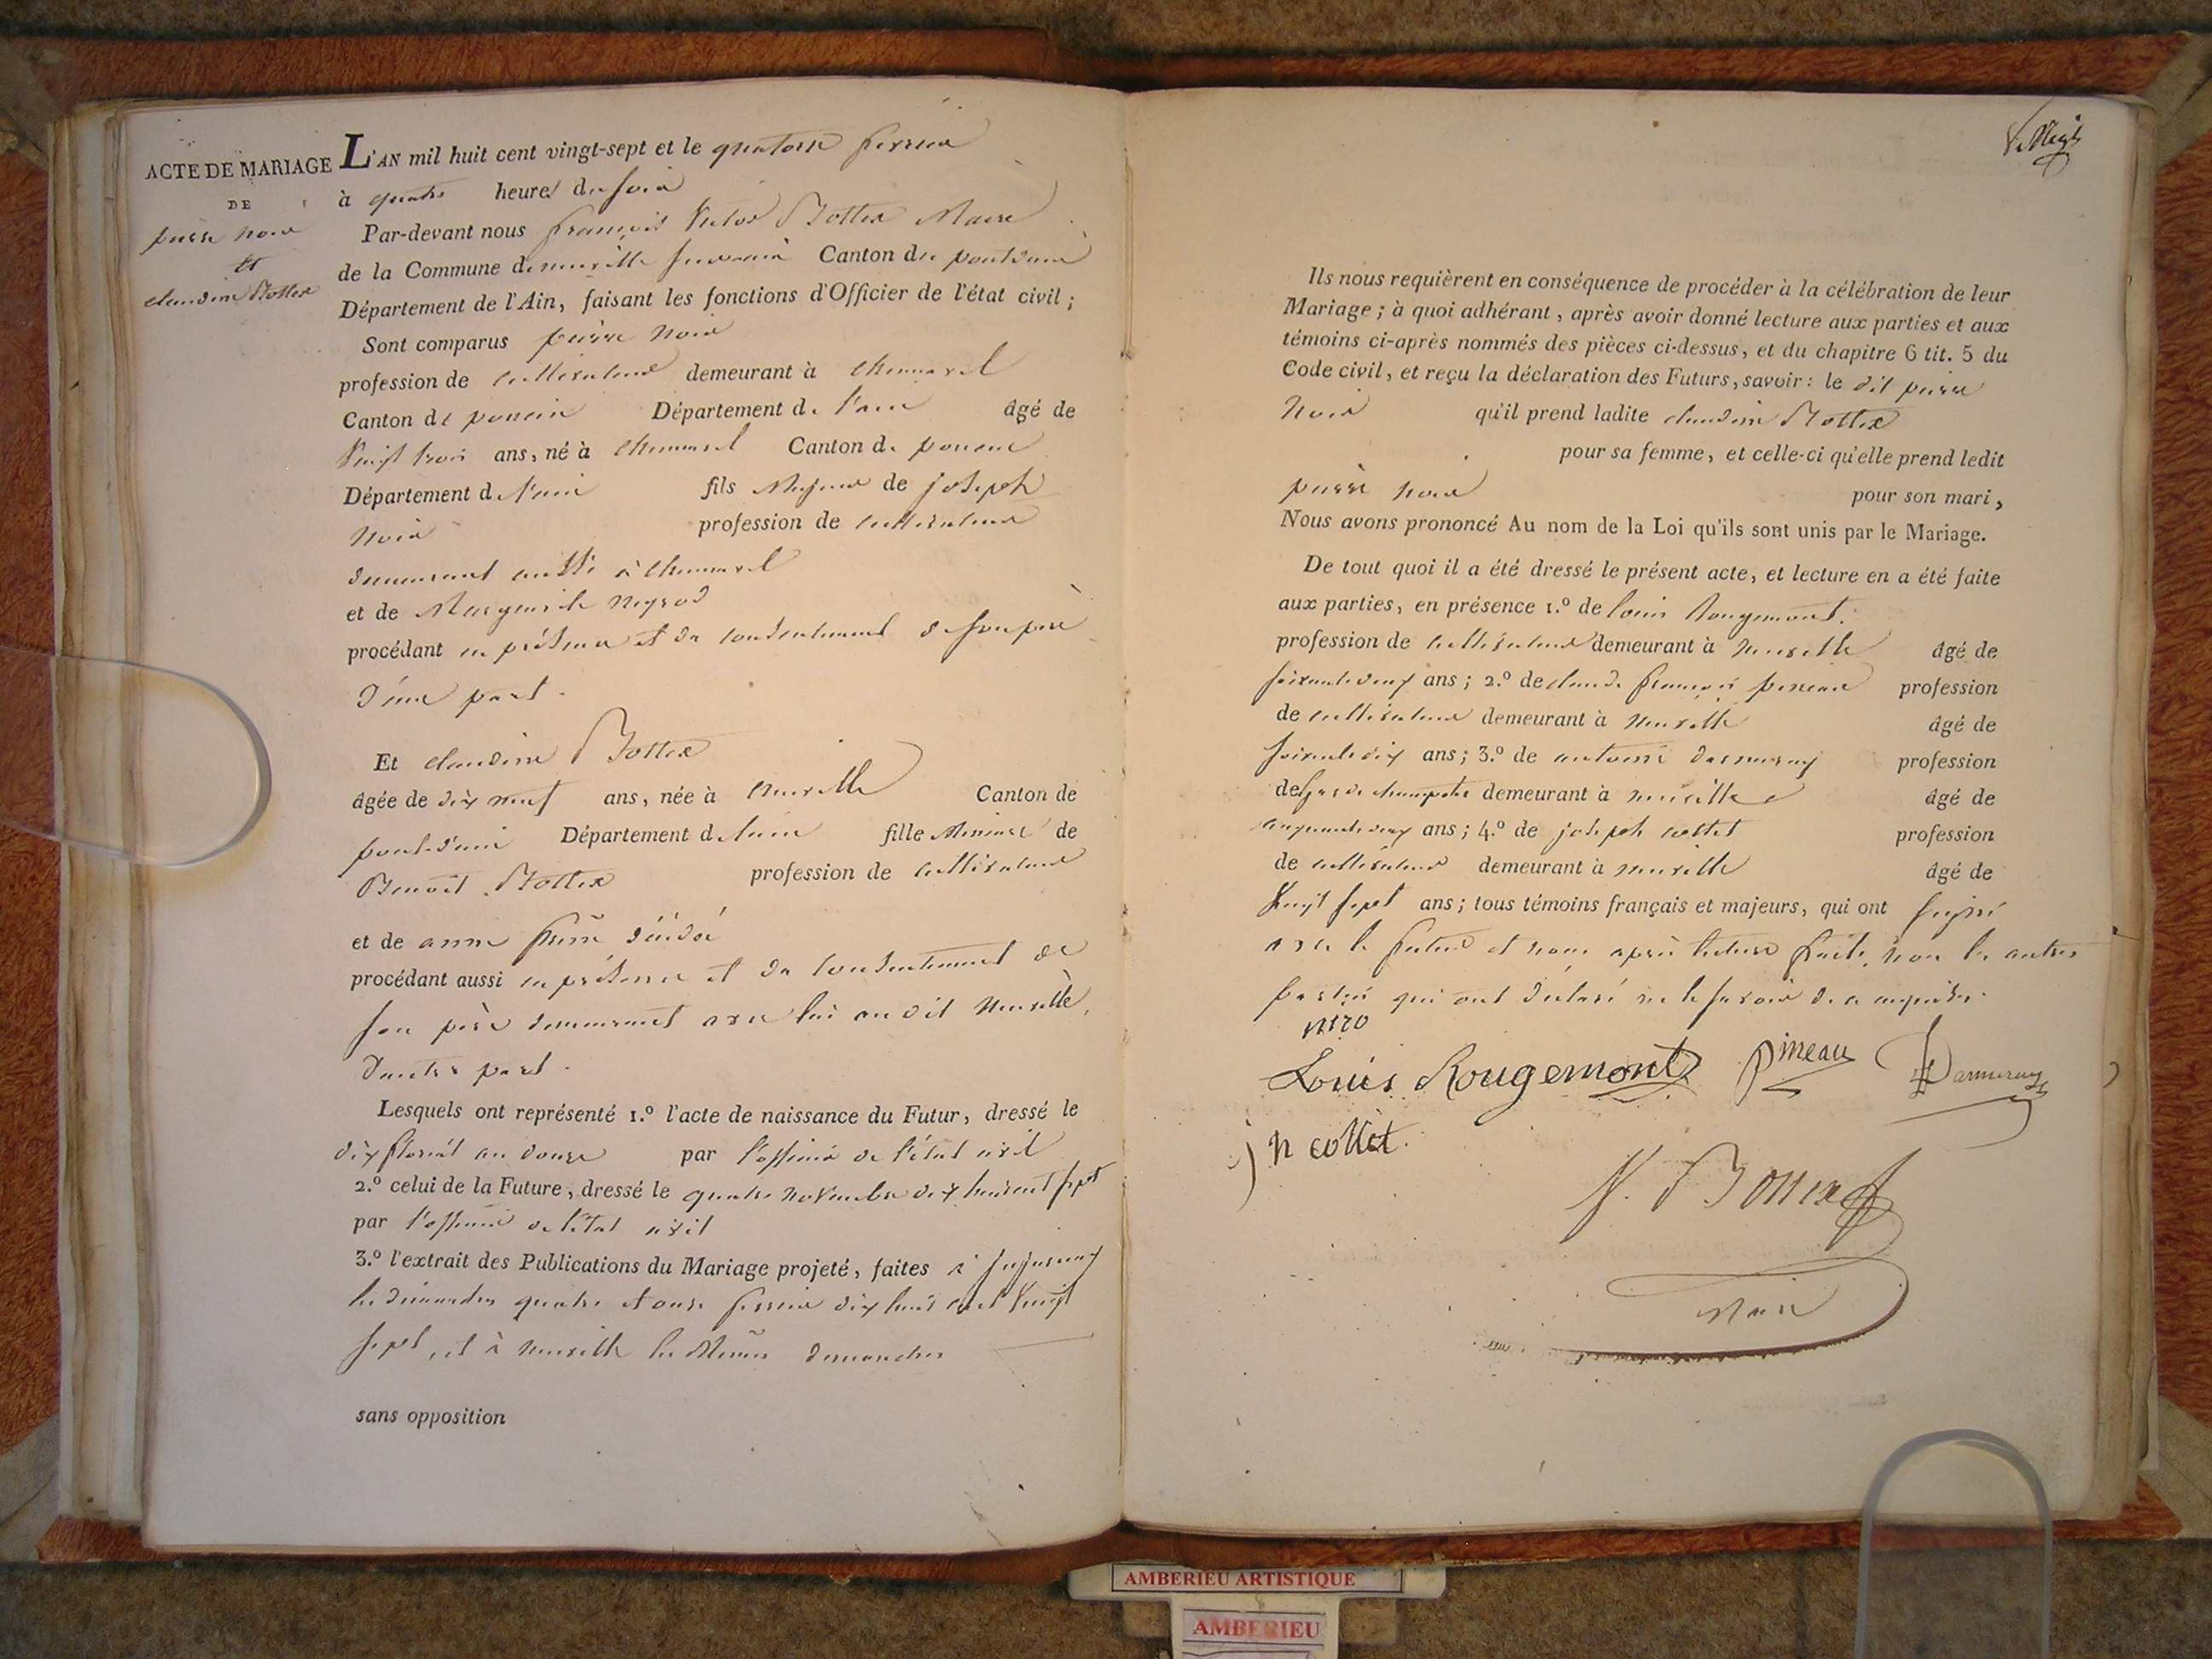 ACTE DE MARIAGE
DE
pierre noir
et
claudine Bottex
L'AN mil huit cent vingt-sept et le quatorze fevrier
à quatre heures du soir
Par-devant nous françois Victor Bottex Maire
de la Commune de neuville sur ain Canton du pontdain
Département de l'Ain, faisant les fonctions d'Officier de l'état civil;
Sont comparus pierre noir
profession de cultivateur demeurant à Chenavel
Canton de poncin Département de l'ain âgé de
Vingt trois ans, né à Chenavel Canton de poncin
Département de l'ain fils Majeur de joseph
noir profession de cultivateur
demeurant aussi à Chenavel
et de Marguerite neyrod
procédant en présence et du consentement de son père
d'une part.
Et claudine Bottex
âgée de dix neuf ans, née à neuville Canton de
pont-d'ain Département de l'ain fille Mineure de
Benoit Bottex profession de cultivateur
et de anne décédée
procédant aussi en présence et du consentement de
son père demeurant avec lui au dit neuville,
d'autre part.
Lesquels ont représenté 1.º l'acte de naissance du Futur, dressé le
dix floréal an douze par l'officier de l'état civil
2.º celui de la Future, dressé le quatre novembre dix huit cent sept
par l'officier de l'état civil
3.º l'extrait des Publications du Mariage projeté, faites à jujurieux
les dimanches quatre et onze fevrier dix huit cent Vingt
sept, et à neuville les Mêmes dimanches
sans opposition
Ils nous requièrent en conséquence de procéder à la célébration de leur
Mariage; à quoi adhérant, après avoir donné lecture aux parties et aux
témoins ci-après nommés des pièces ci-dessus, et du chapitre 6 tit. 5 du
Code civil, et reçu la déclaration des Futurs, savoir: le dit pierre
noir qu'il prend ladite claudine Bottex
pour sa femme, et celle-ci qu'elle prend ledit
pierre noir pour son mari,
Nous avons prononcé Au nom de la Loi qu'ils sont unis par le Mariage.
De tout quoi il a été dressé le présent acte, et lecture en a été faite
aux parties, en présence 1.º de louis Rougemont
profession de cultivateur demeurant à neuville âgé de
soixante deux ans; 2.º de claude françois pineau profession
de cultivateur demeurant à neuville âgé de
soixante dix ans; 3.º de antoine darmeray profession
de garde champetre demeurant à neuville âgé de
cinquante deux ans; 4.º de joseph collet profession
de cultivateur demeurant à neuville âgé de
Vingt sept ans; tous témoins français et majeurs, qui ont signé
avec le futur et nous après lecture faite, non les autres
parties qui ont déclaré ne le savoir de ce enquises.
Louis Rougemont Pineau Darmeray
j h collet.
V. Bottex
Maire
AMBERIEU ARTISTIQUE
AMBERIEU